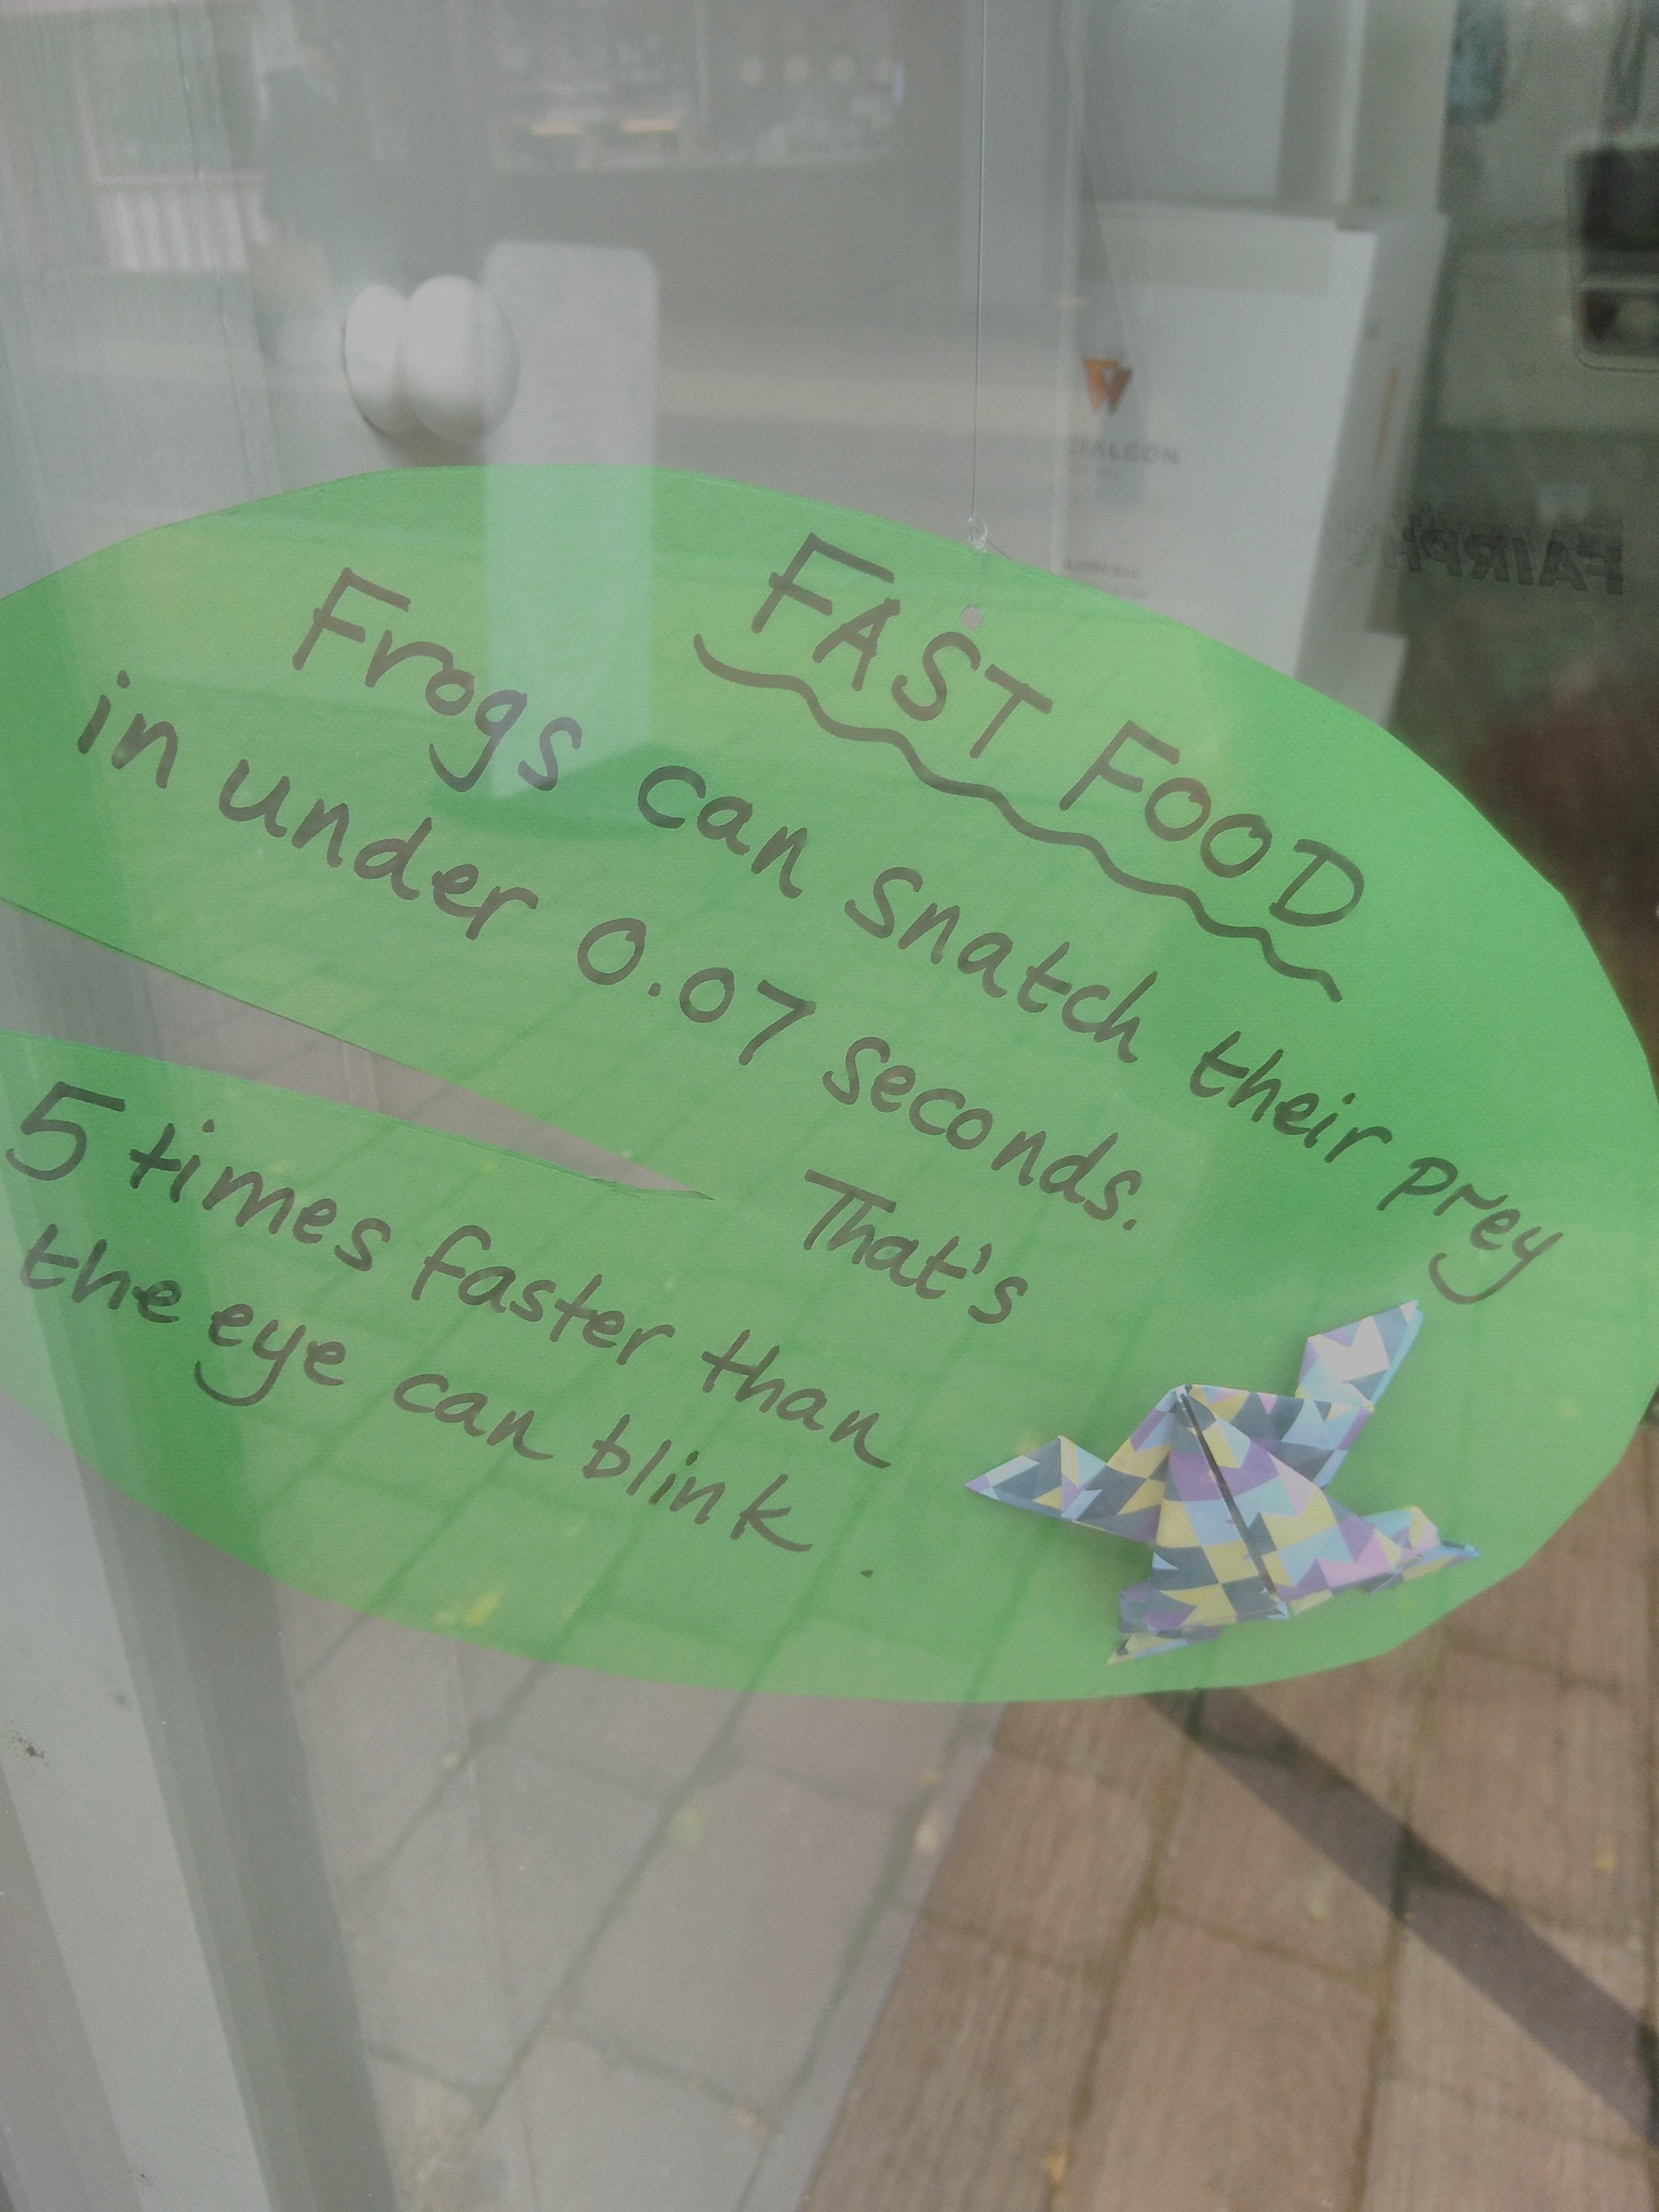 FAST FOOD
Frogs can snatch their prey
in under 0.07 seconds.
That's
5 times faster than
the eye can blink.